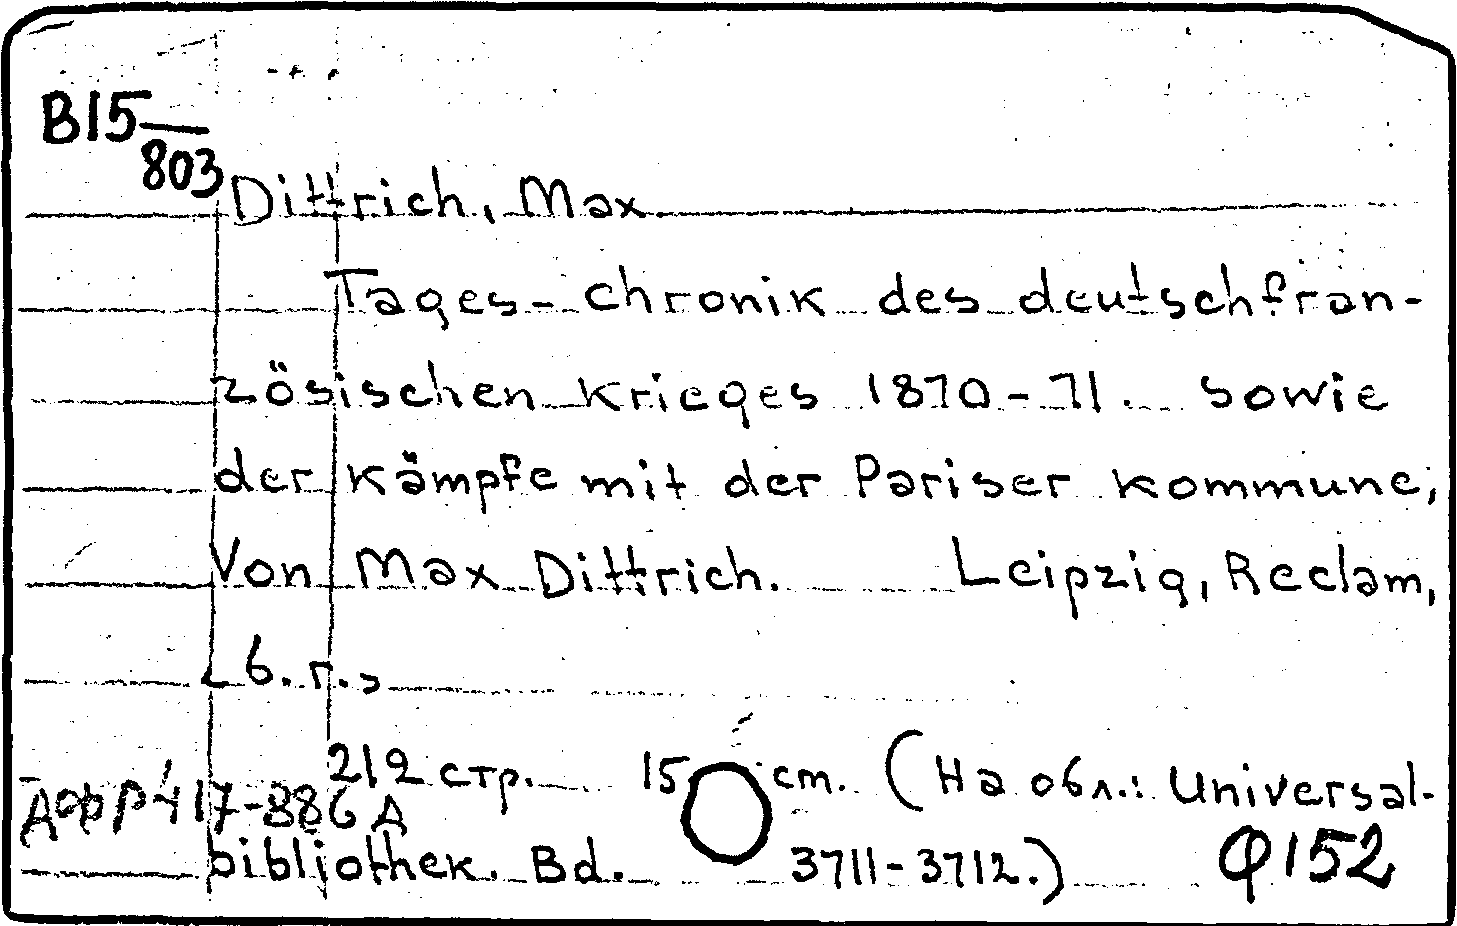 B15
803
Dittrich, Max
Tages-chronik des deutschfran-
zösischen Krieges 1870-71. sowie
der Kämpfe mit der Pariser Kommune,
Von Max Dittrich. Leipzig, Reclam,
б. г.,
212 стр. 15 cm. (На обл.: Universal-
417-886 А
bibliothek. Bd. 3711-3712.) Ф152